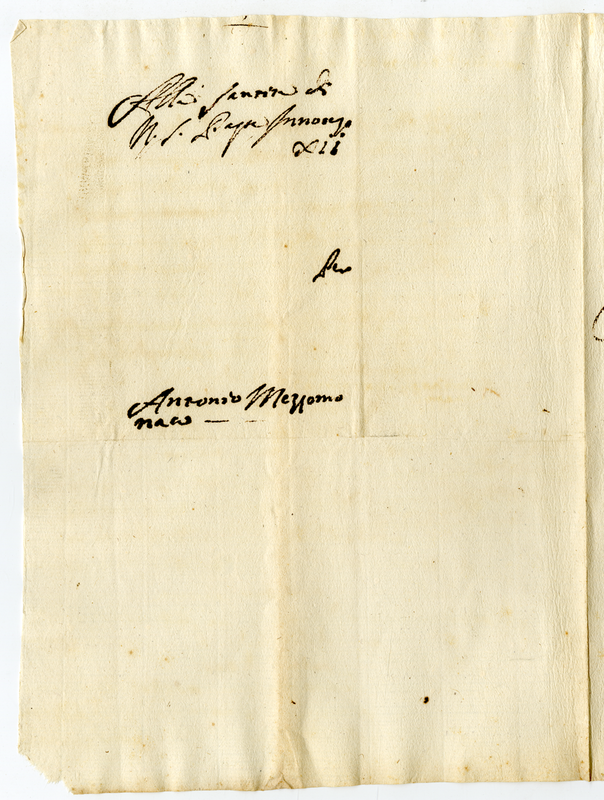 Alla Santità di
N. S. Papa Innocenzo
XII
Per
Antonio Mezzomo
naco